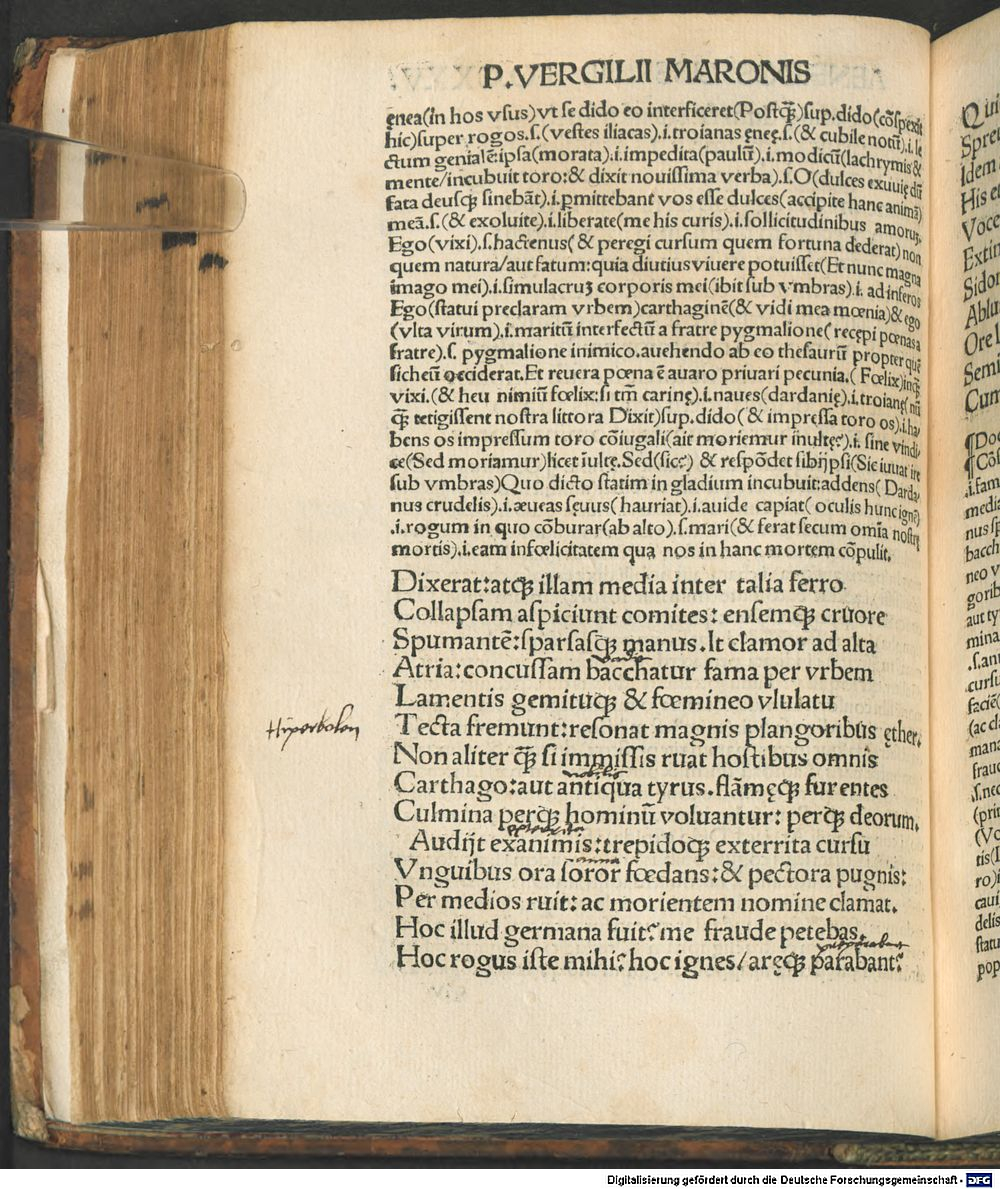 P. VERGILII MARONIS
ęnea(in hos vsus)vt se dido eo interficeret(Postꝙ̃)sup.dido(cõspexit
hic)super rogos.s.(vestes iliacas).i.troianas ęneę.s.(& cubile notũ).i.le
ctum genialẽ:ipsa(morata).i.impedita(paulũ).i.modicũ(lachrymis &
mente/incubuit toro:& dixit nouissima verba).s.O(dulces exuuię dũ
fata deusqꝫ sinebãt).i.ꝑmittebant vos esse dulces(accipite hanc animã)
meã.s.(& exoluite).i.liberate(me his curis).i.sollicitudinibus amorus,
Ego(vixi).s.hactenus(& peregi cursum quem fortuna dederat)non
quem natura/aut fatum:quia diutius viuere potuisset(Et nunc magna
imago mei).i.simulacruꝫ corporis mei(ibit sub vmbras).i. ad inferos
Ego(statui preclaram vrbem)carthaginẽ(& vidi mea mœnia)& ego
(vlta virum).i.maritũ interfectũ a fratre pygmalione(recępi pœnas a
fratre).s. pygmalione inimico.auehendo ab eo thesaurũ propter quẽ
sicheũ occiderat.Et reuera pœna ẽ auaro priuari pecunia.(Fœlix)inqꝫ
vixi.(& heu nimiũ fœlix:si tm̃ carinę).i.naues(dardanię).i.troianę(nũ
ꝙ̃ tetigissent nostra littora Dixit)sup.dido(& impressa toro os).i.ha/
bens os impressum toro cõiugali(ait moriemur inultę?).i. sine vindi/
ce(Sed moriamur)licet iũltę.Sed(sic?) & respõdet sibijpsi(Sic iuuat ire
sub vmbras)Quo dicto statim in gladium incubuit:addens(Darda/
nus crudelis).i.æueas sęuus(hauriat).i.auide capiat(oculis hunc ignẽ)
.i.rogum in quo cõburar(ab alto).s.mari(& ferat secum omĩa nostrę
mortis).i.eam infœlicitatem qua nos in hanc mortem cõpulit.
Dixerat:atqꝫ illam media inter talia ferro
Collapsam aspiciunt comites: ensemqꝫ cruore
Spumantẽ:sparsasqꝫ manus.It clamor ad alta
Atria:concussam bacchatur fama per vrbem
Lamentis gemituqꝫ & fœmineo vlulatu
Hiperbolen
Tecta fremunt:resonat magnis plangoribus ęther.
Non aliter ꝙ̃ si immissis ruat hostibus omnis
nobilis
Carthago:aut antiqua tyrus.flãmęqꝫ furentes
Culmina perqꝫ hominũ voluantur: perqꝫ deorum.
Audijt exanimis:trepidoqꝫ exterrita cursu
anna
Vnguibus ora soror fœdans:& pectora pugnis:
Per medios ruit: ac morientem nomine clamat.
Hoc illud germana fuit? me fraude petebas.
Hoc rogus iste mihi? hoc ignes/aręqꝫ parabant?
Digitalisierung gefördert durch die Deutsche Forschungsgemeinschaft - DFG